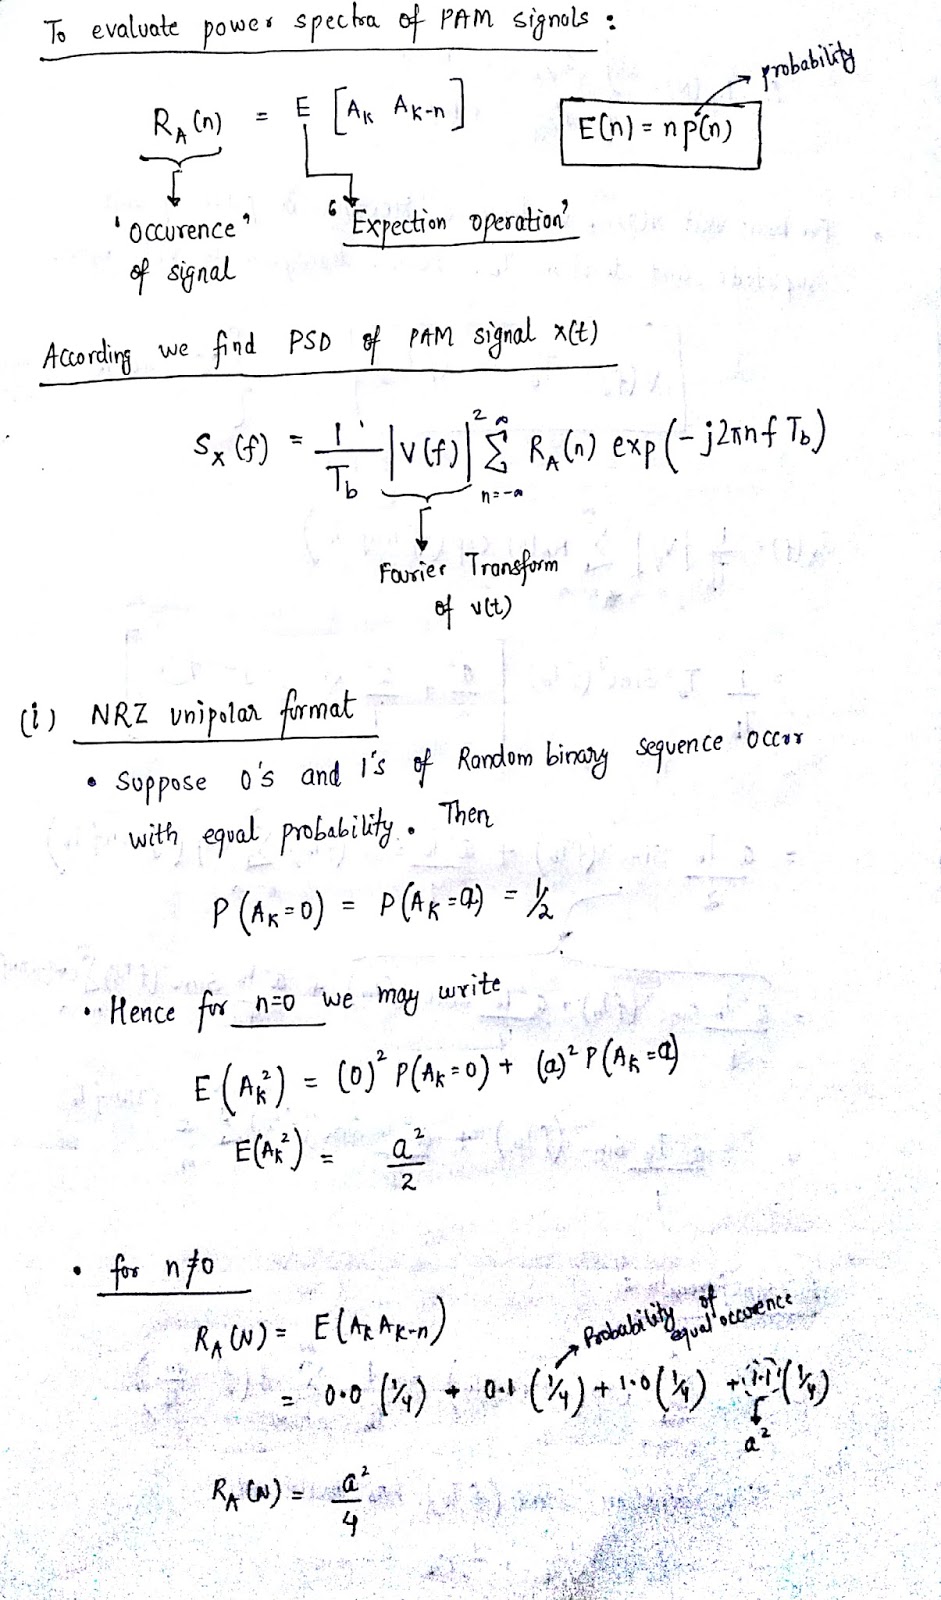 To evaluate power spectra of PAM signals :
probability
R_A (n) = E [A_K A_K-n]
E(n) = n p(n)
'occurence' of signal
'Expection operation'
According we find PSD of PAM signal x(t)
S_x (f) = 1/T_b |V(f)|^2 Σ_{n=-∞}^{∞} R_A(n) exp(-j2πnf T_b)
Fourier Transform
of v(t)
(i) NRZ unipolar format
• Suppose 0's and 1's of Random binary sequence occur
with equal probability. Then
P(A_K=0) = P(A_K=a) = 1/2
• Hence for n=0 we may write
E(A_K^2) = (0)^2 P(A_K=0) + (a)^2 P(A_K=a)
E(A_K^2) = a^2/2
• for n≠0
R_A (N) = E(A_K A_K-n)
Probability of equal occurence
= 0.0 (1/4) + 0.1 (1/4) + 1.0 (1/4) + 1.1 (1/4)
a^2
R_A (N) = a^2/4